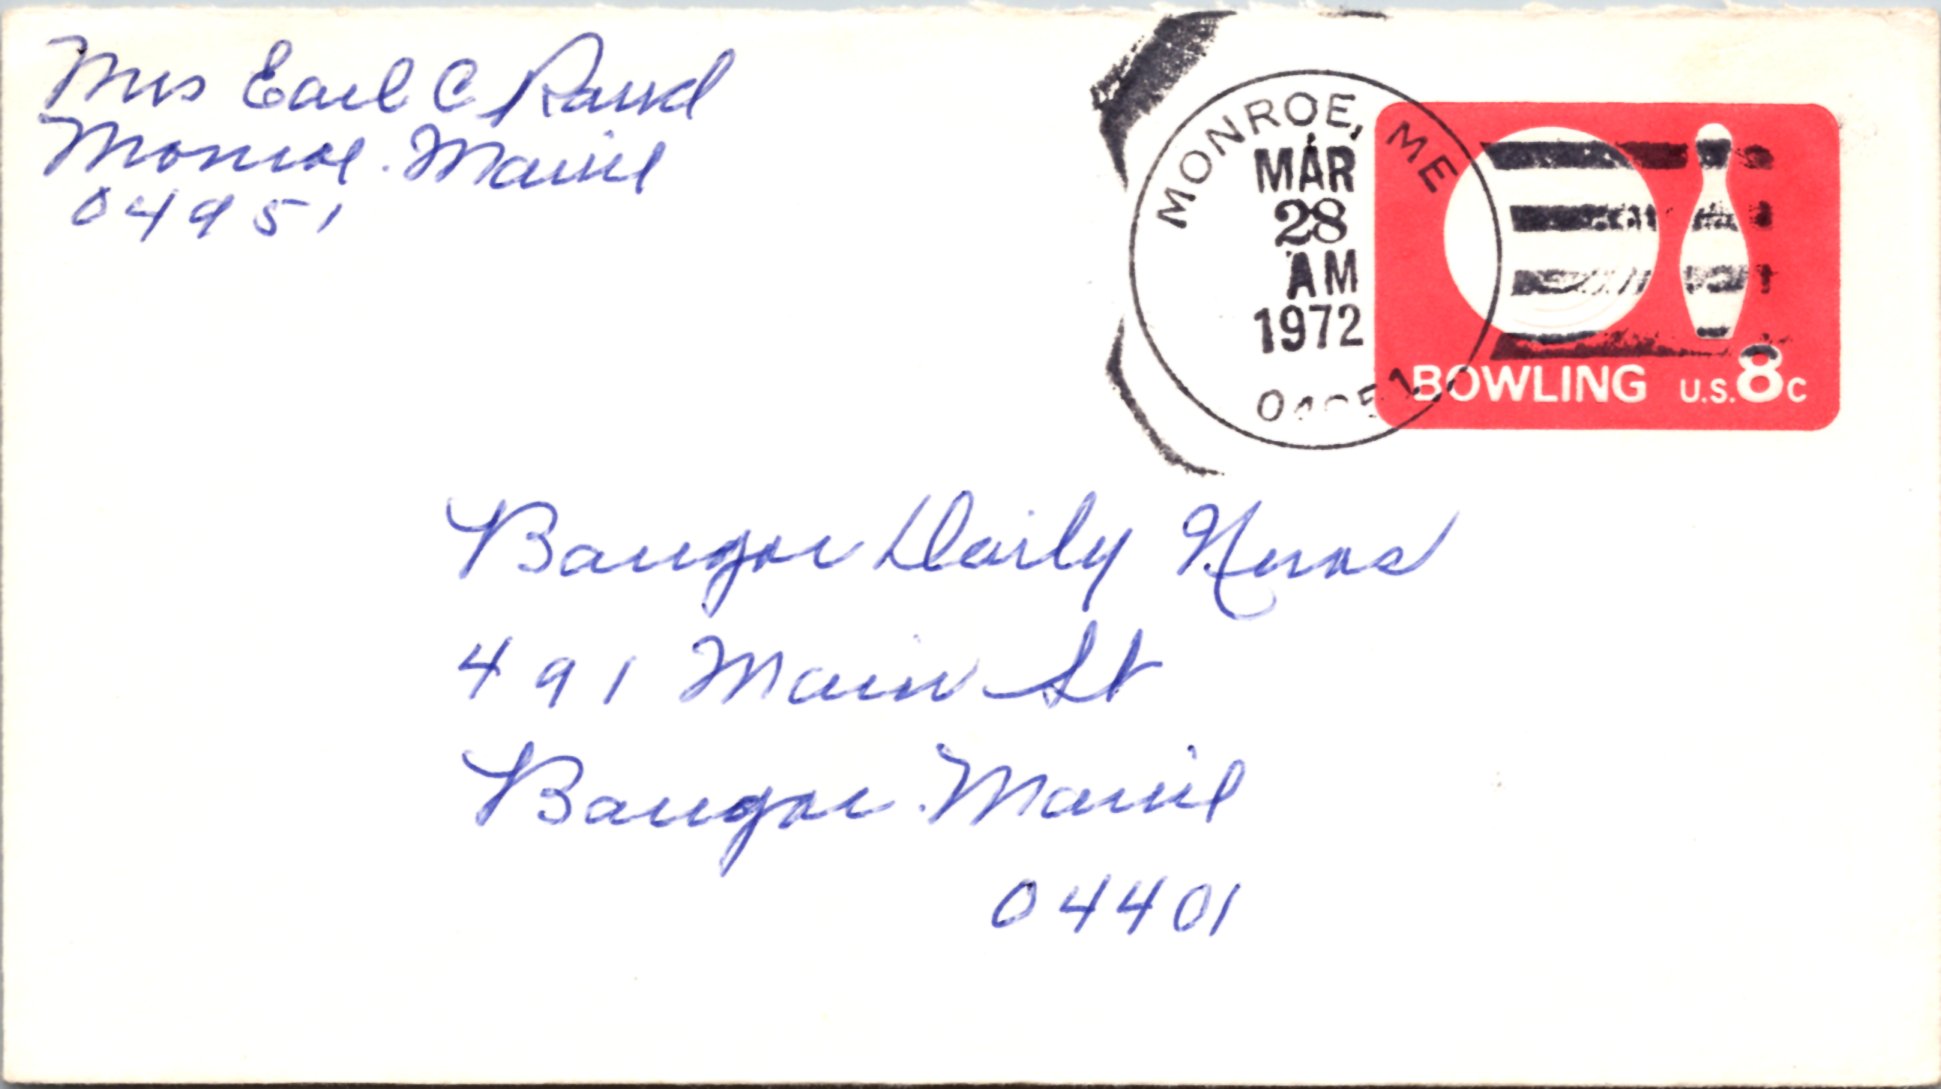 Mrs Earl C Rand
Monroe. Maine
04951
MONROE, ME
MAR
28
AM
1972
04951
BOWLING U.S. 8c
Bangor Daily News
491 Main St
Bangor. Maine
04401